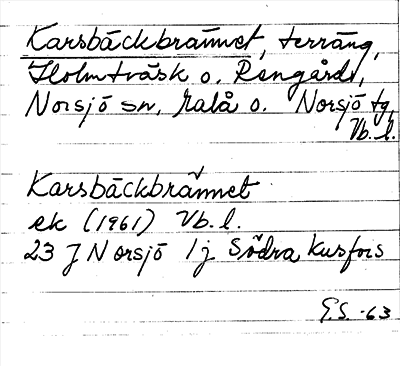 Karsbäckbrännet, terräng,
Holmträsk o. Rengård,
Norsjö sn, Malå o. Norsjö tg,
Vb. l.
Karsbäckbrännet
ek (1961) Vb. l.
23 J Norsjö 1 j Södra Kusfors
G.S. -63